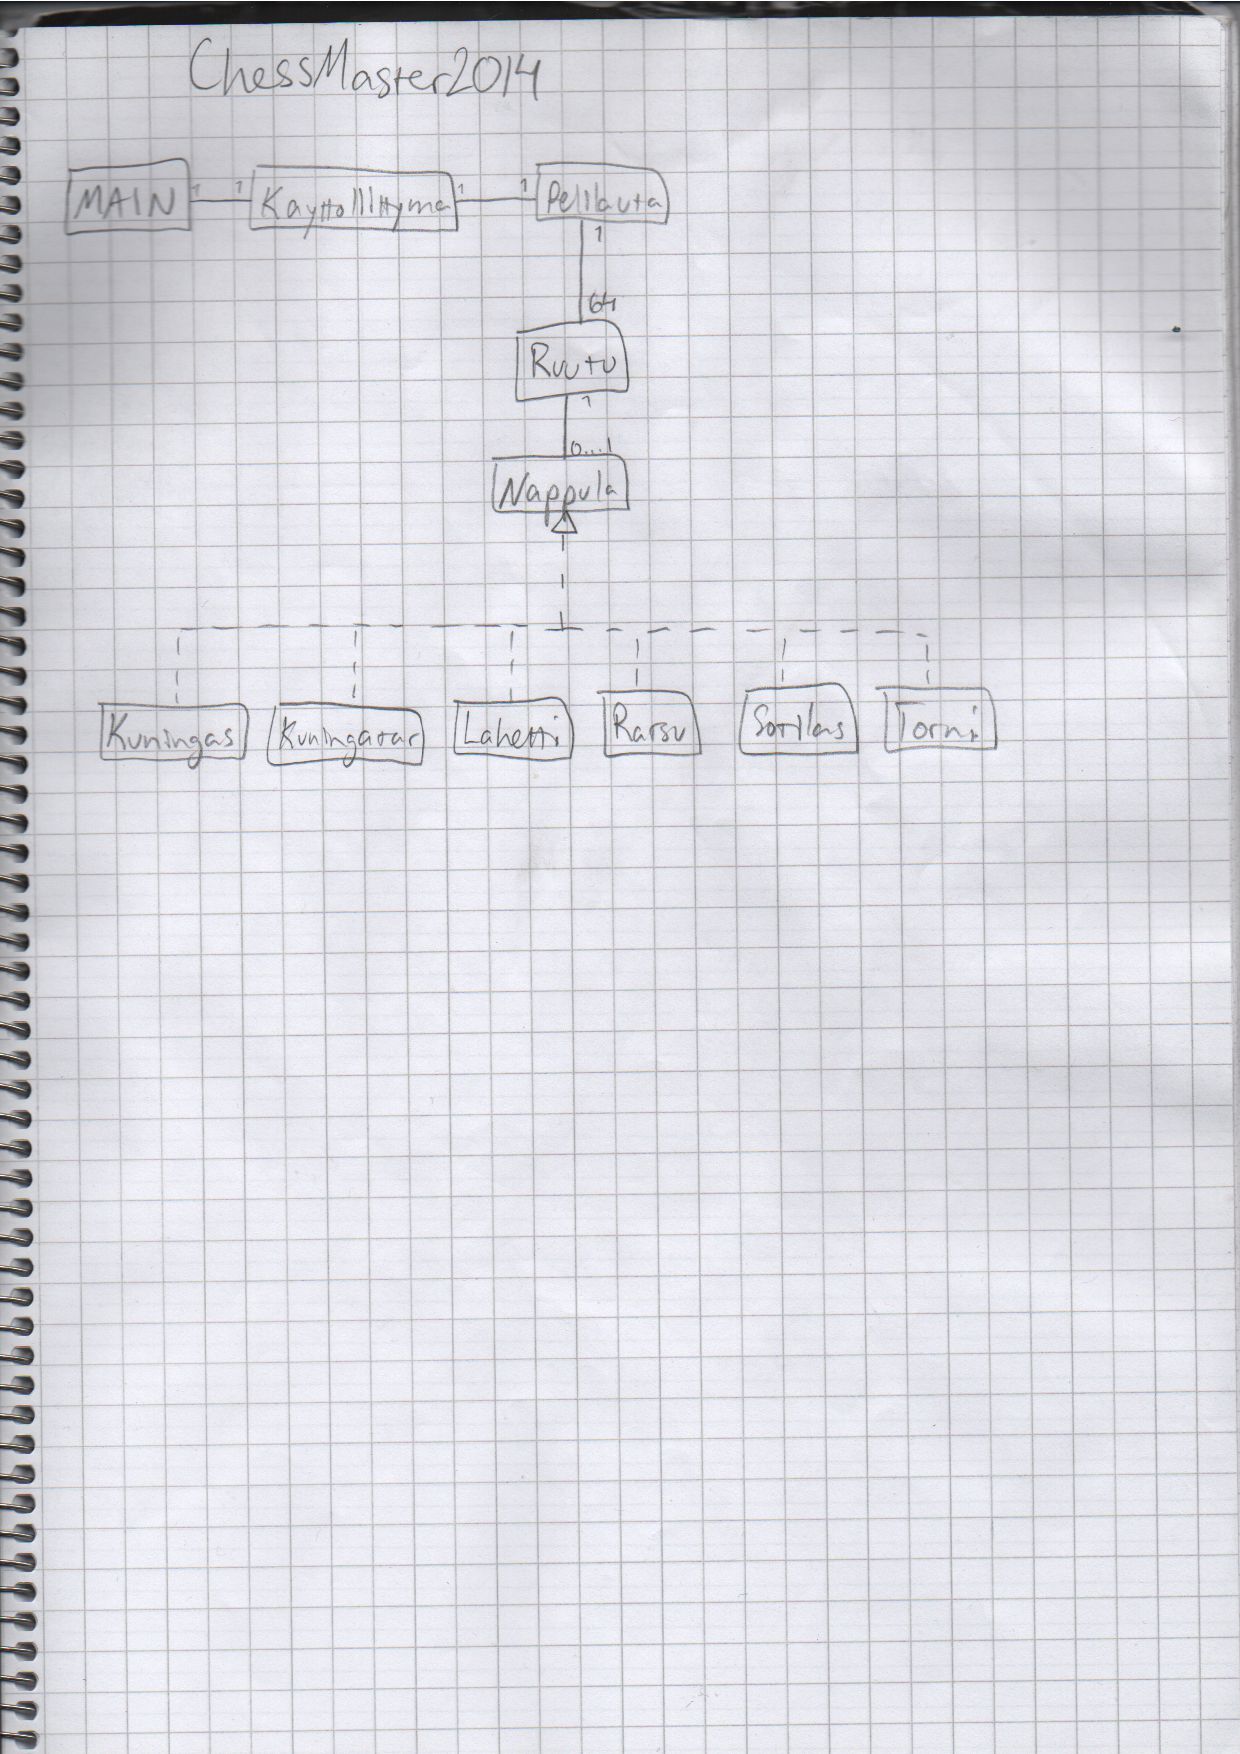 ChessMaster2014
MAIN 1 1 Kayttoliittyma 1 1 Pelilauta
1
64
Ruutu
1
0...1
Nappula
Kuningas Kuningatar Lahetti Ratsu Sotilas Torni